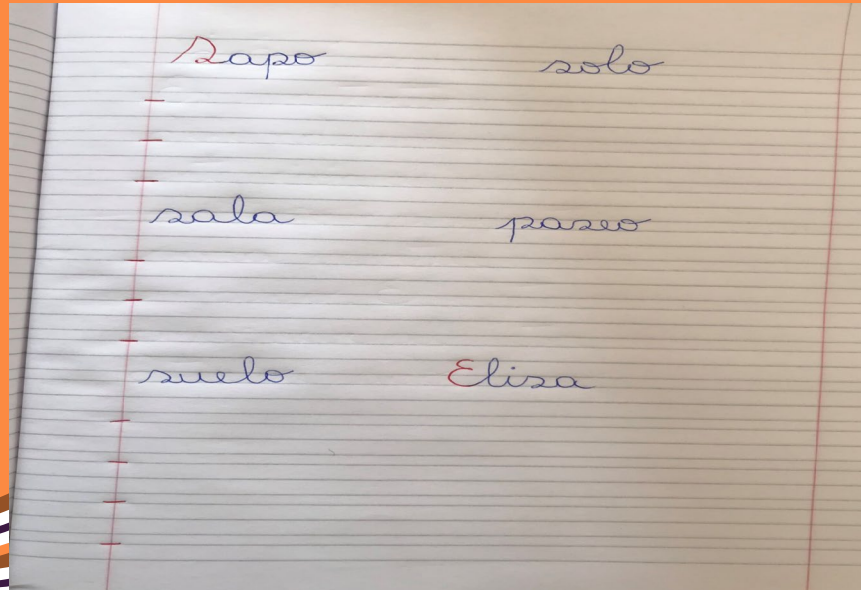 Sapo solo
sala paseo
suelo Elisa